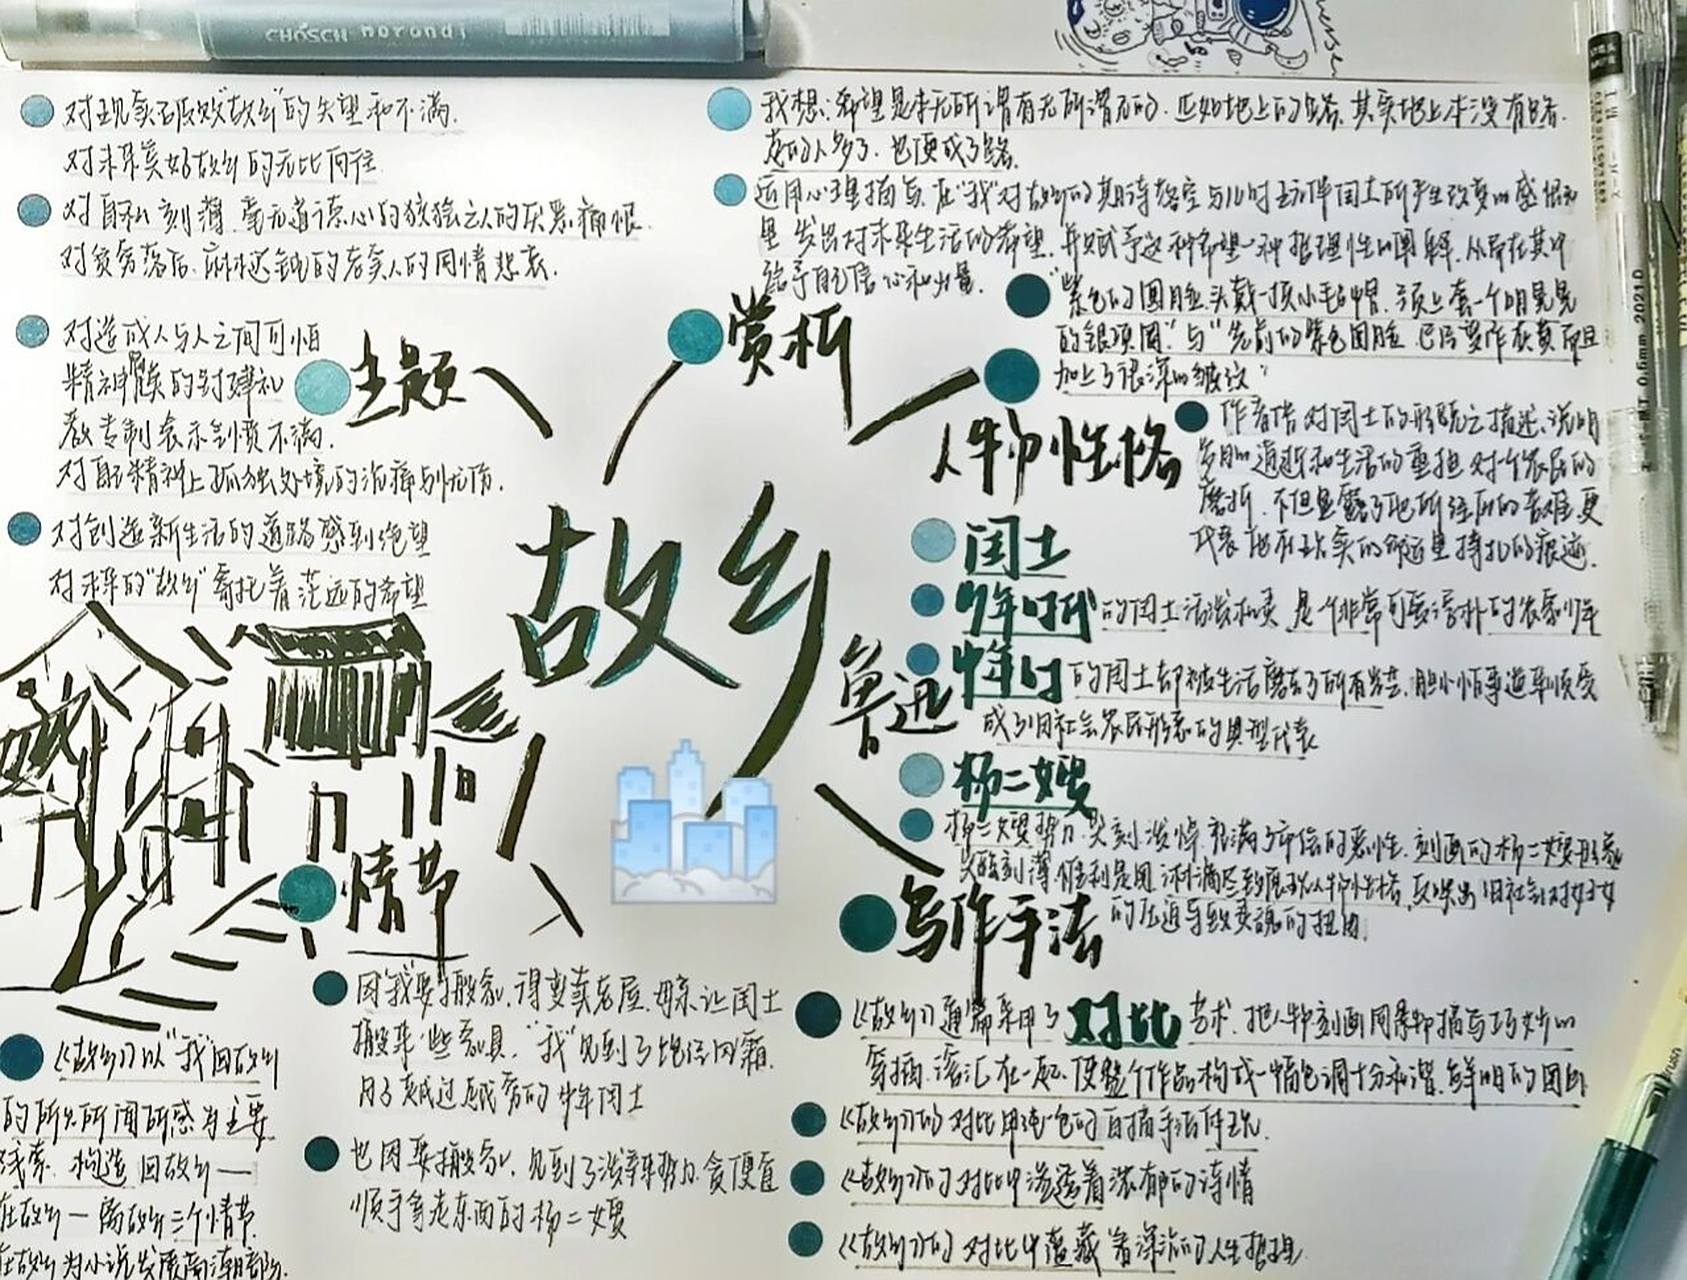 CHOSCH norondi
对现实已破败"故乡"的失望和不满.
对未来美好故乡的无比向往.
对自私刻薄.毫无道德心的狡猾之人的厌恶痛恨.
对贫穷落后.麻木迟钝的老实人的同情悲哀.
对造成人与人之间可怕
精神的封建礼
教专制表示愤不满.
对自己精神上孤独处境的治疼与忧伤.
对创造新生活的道路感到绝望
对未来的"故乡"寄托着茫远的希望
主题
赏析
我想:希望是本无所谓有无所谓无的.正如地上的路.其实地上本没有路.
走的人多了.也便成了路.
运用心理描写.在"我"对故乡的期待落空与儿时玩伴闰土所产生改变的感慨
里发出对未来生活的希望.并赋予这种希望一种哲理性的阐释.从而在其中
给予自己信心和力量.
人物性格
"紫色的圆脸.头戴一顶小毡帽.颈上套一个明晃晃
的银项圈."与"先前的紫色圆脸.已经变作灰黄.而且
加上了很深的皱纹"
作者借对闰土的形貌之描述.说明
岁月的遭逝和生活的重担对个农民的
磨折.不但显露了他所经历的苦难.更
代表他在现实的命运里挣扎的痕迹.
故乡
鲁迅
闰土
少年时代的闰土活泼机灵.是一个非常可爱淳朴的农家少年
中年时的闰土却被生活磨去了所有光芒.胆小怕事逆来顺受
成了旧社会农民形象的典型代表
杨二嫂
杨二嫂势力.尖刻.泼悍.充满了市侩的恶性.刻画的杨二嫂形象
尖酸刻薄.唯利是图.淋漓尽致展现人物性格.反映出旧社会对妇女
的压迫导致灵魂的扭曲.
情节
写作手法
因"我"要搬家.得变卖老屋.母亲让闰土
搬来些家具."我"见到了饱经风霜.
月子越过越穷的中年闰土
也因要搬家.见到了泼辣势力.贪便宜
顺手拿走东西的杨二嫂
《故乡》以"我"回故乡
的所见所闻所感为主要
线索.构造回故乡—
在故乡—离故乡三个情节.
在故乡为小说发展高潮部分.
《故乡》通篇采用了对比艺术.把人物刻画同景物描写巧妙的
穿插.溶汇在一起.使整个作品构成一幅色调十分和谐.鲜明的图画
《故乡》的对比用纯色的白描手法体现.
《故乡》的对比中渗透着浓郁的诗情
《故乡》的对比中蕴藏着深沉的人生哲理.
0.5mm 2021D